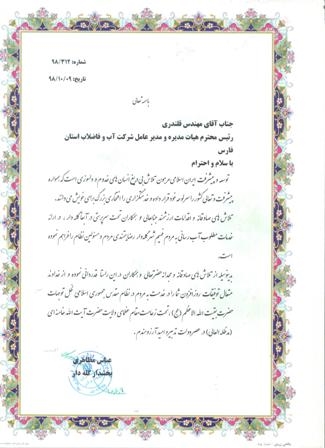 شماره: ۹۸/۳۱۲
تاریخ: ۹۸/۱۰/۰۹
باسمه تعالی
جناب آقای مهندس قلندری
رئیس محترم هیات مدیره و مدیر عامل شرکت آب و فاضلاب استان
فارس
با سلام و احترام
توسعه و پیشرفت ایران اسلامی مرهون تلاش بی دریغ انسان های خدوم و دلسوزی است که همواره
پیشرفت و تعالی کشور را سرلوحه خود قرار داده و خدمتگزاری را افتخاری بزرگ برای خویش می دانند.
تلاش های صادقانه و اقدامات ارزشمند جنابعالی و همکاران تحت سرپرستی در آبفا گله دار، در ارائه
خدمات مطلوب آب رسانی به مردم فهیم شهر گله دار رضایتمندی مردم و مسئولین نظام را فراهم نموده
است.
بدینوسیله از تلاش های صادقانه و مجدانه حضرتعالی و همکاران در این راستا قدردانی نموده و از خداوند
متعال توفیقات روزافزون شما را در خدمت به مردم و نظام مقدس جمهوری اسلامی ظل توجهات
حضرت بقیت الله الاعظم (عج)، تحت زعامت مقام عظمای ولایت حضرت آیت الله خامنه ای
(مدظله العالی) در عصر دولت تدبیر و امید آرزومندم.
عباس مظاهری
بخشدار گله دار